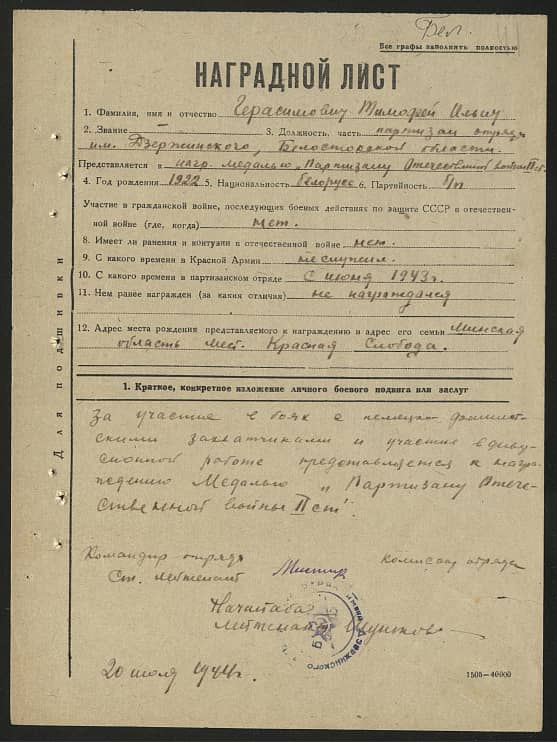 Бел.
41
Все графы заполнить полностью
НАГРАДНОЙ ЛИСТ
1. Фамилия, имя и отчество Герасимович Тимофей Ильич
2. Звание 3. Должность, часть партизан отряда
им. Дзержинского, Белостокской области.
Представляется к нагр. медалью „Партизану Отечественной войны II ст.
4. Год рождения 1922 5. Национальность белорусс 6. Партийность б/п
Участие в гражданской войне, последующих боевых действиях по защите СССР в отечествен-
ной войне (где, когда) нет.
8. Имеет ли ранения и контузии в отечественной войне нет.
9. С какого времени в Красной Армии не служил.
10. С какого времени в партизанском отряде с июня 1943 г.
11. Чем ранее награжден (за какия отличия) не награждался
12. Адрес места рождения представляемого к награждению и адрес его семьи Минская
область мест. Красная Слобода.
Для подшивки
1. Краткое, конкретное изложение личного боевого подвига или заслуг
За участие в боях с немецко-фашист-
скими захватчиками и участие в дивер-
сионной работе представляется к награ-
ждению Медалью „Партизану Отече-
ственной войны II ст".
Командир отряда комиссар отряда
Ст. лейтенант
Начштаба
лейтенант
20 июля 1944 г.
1505—40000